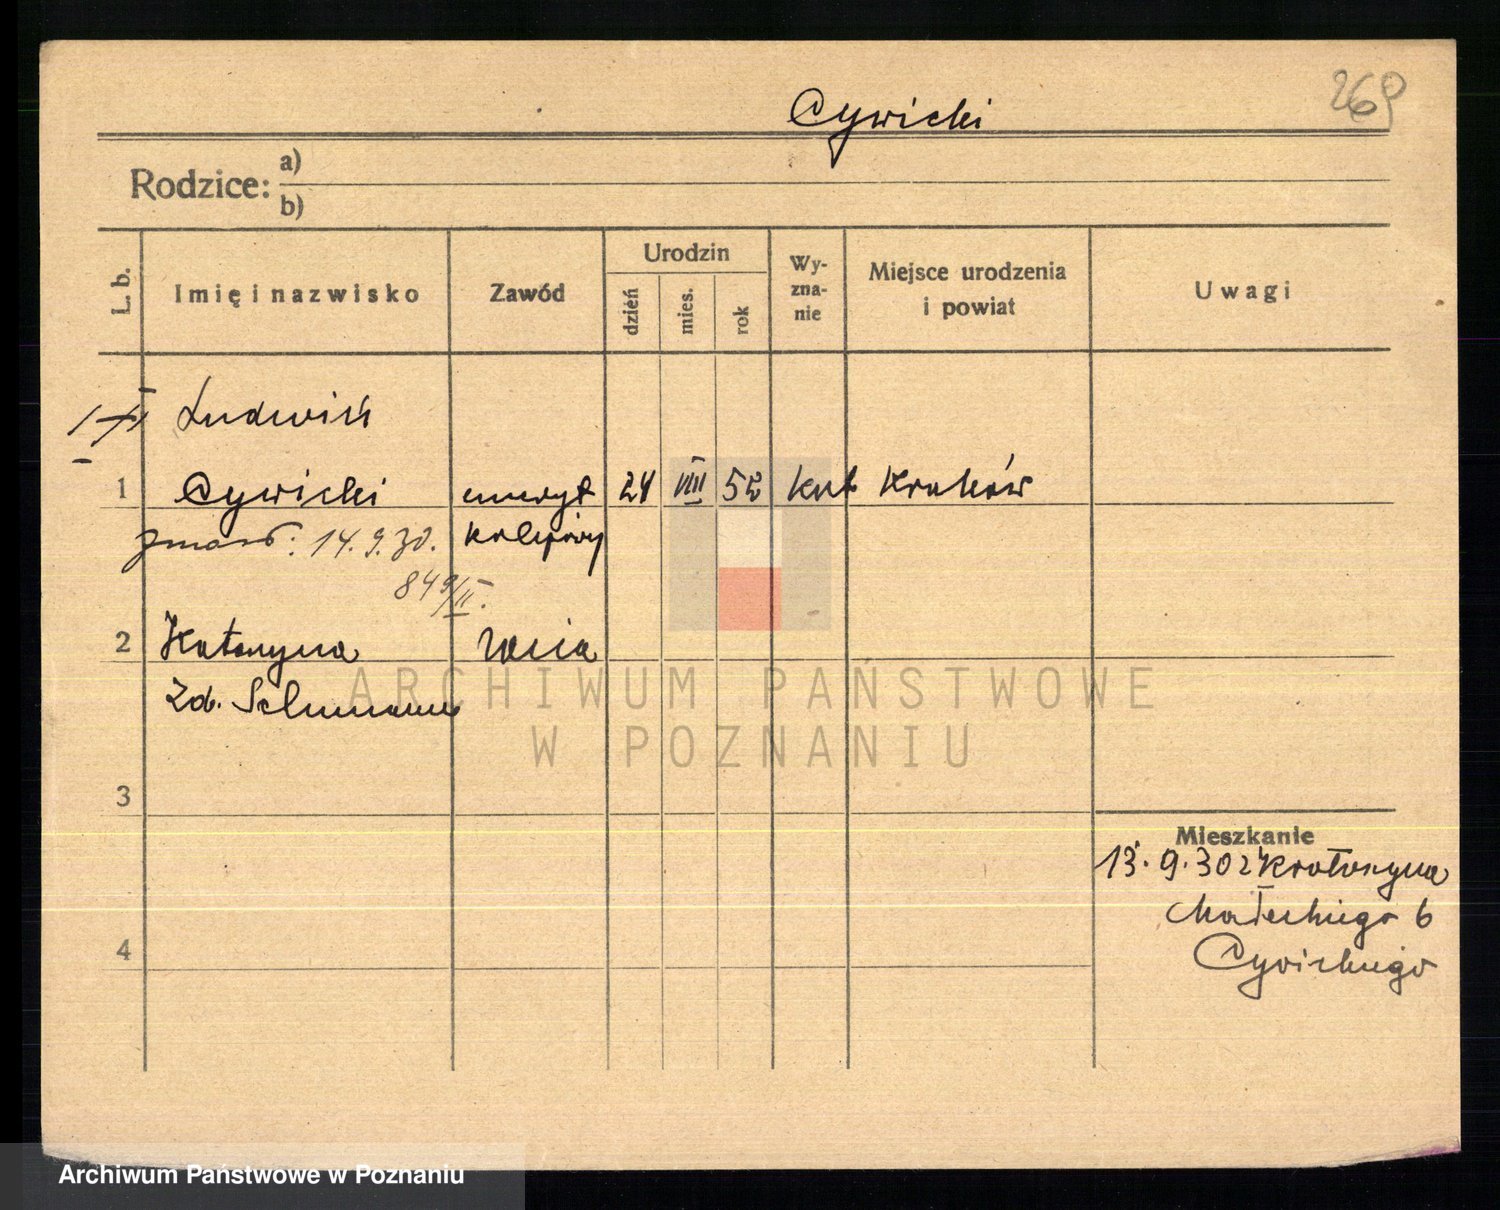 Cywicki
269
Rodzice: a)
b)
L. b.
Imię i nazwisko
Zawód
Urodzin
dzień
mies.
rok
Wy-
zna-
nie
Miejsce urodzenia
i powiat
Uwagi
Ludwik
1 Cywicki emeryt 24 VIII 52 kat Kraków
zmarł: 14.9.30. kolejowy
849/II.
2 Katarzyna
zd. Schumann
3
4
Mieszkanie
13.9.30 z Krotoszyna
Małeckiego 6
Cywickiego
ARCHIWUM PAŃSTWOWE
W POZNANIU
Archiwum Państwowe w Poznaniu